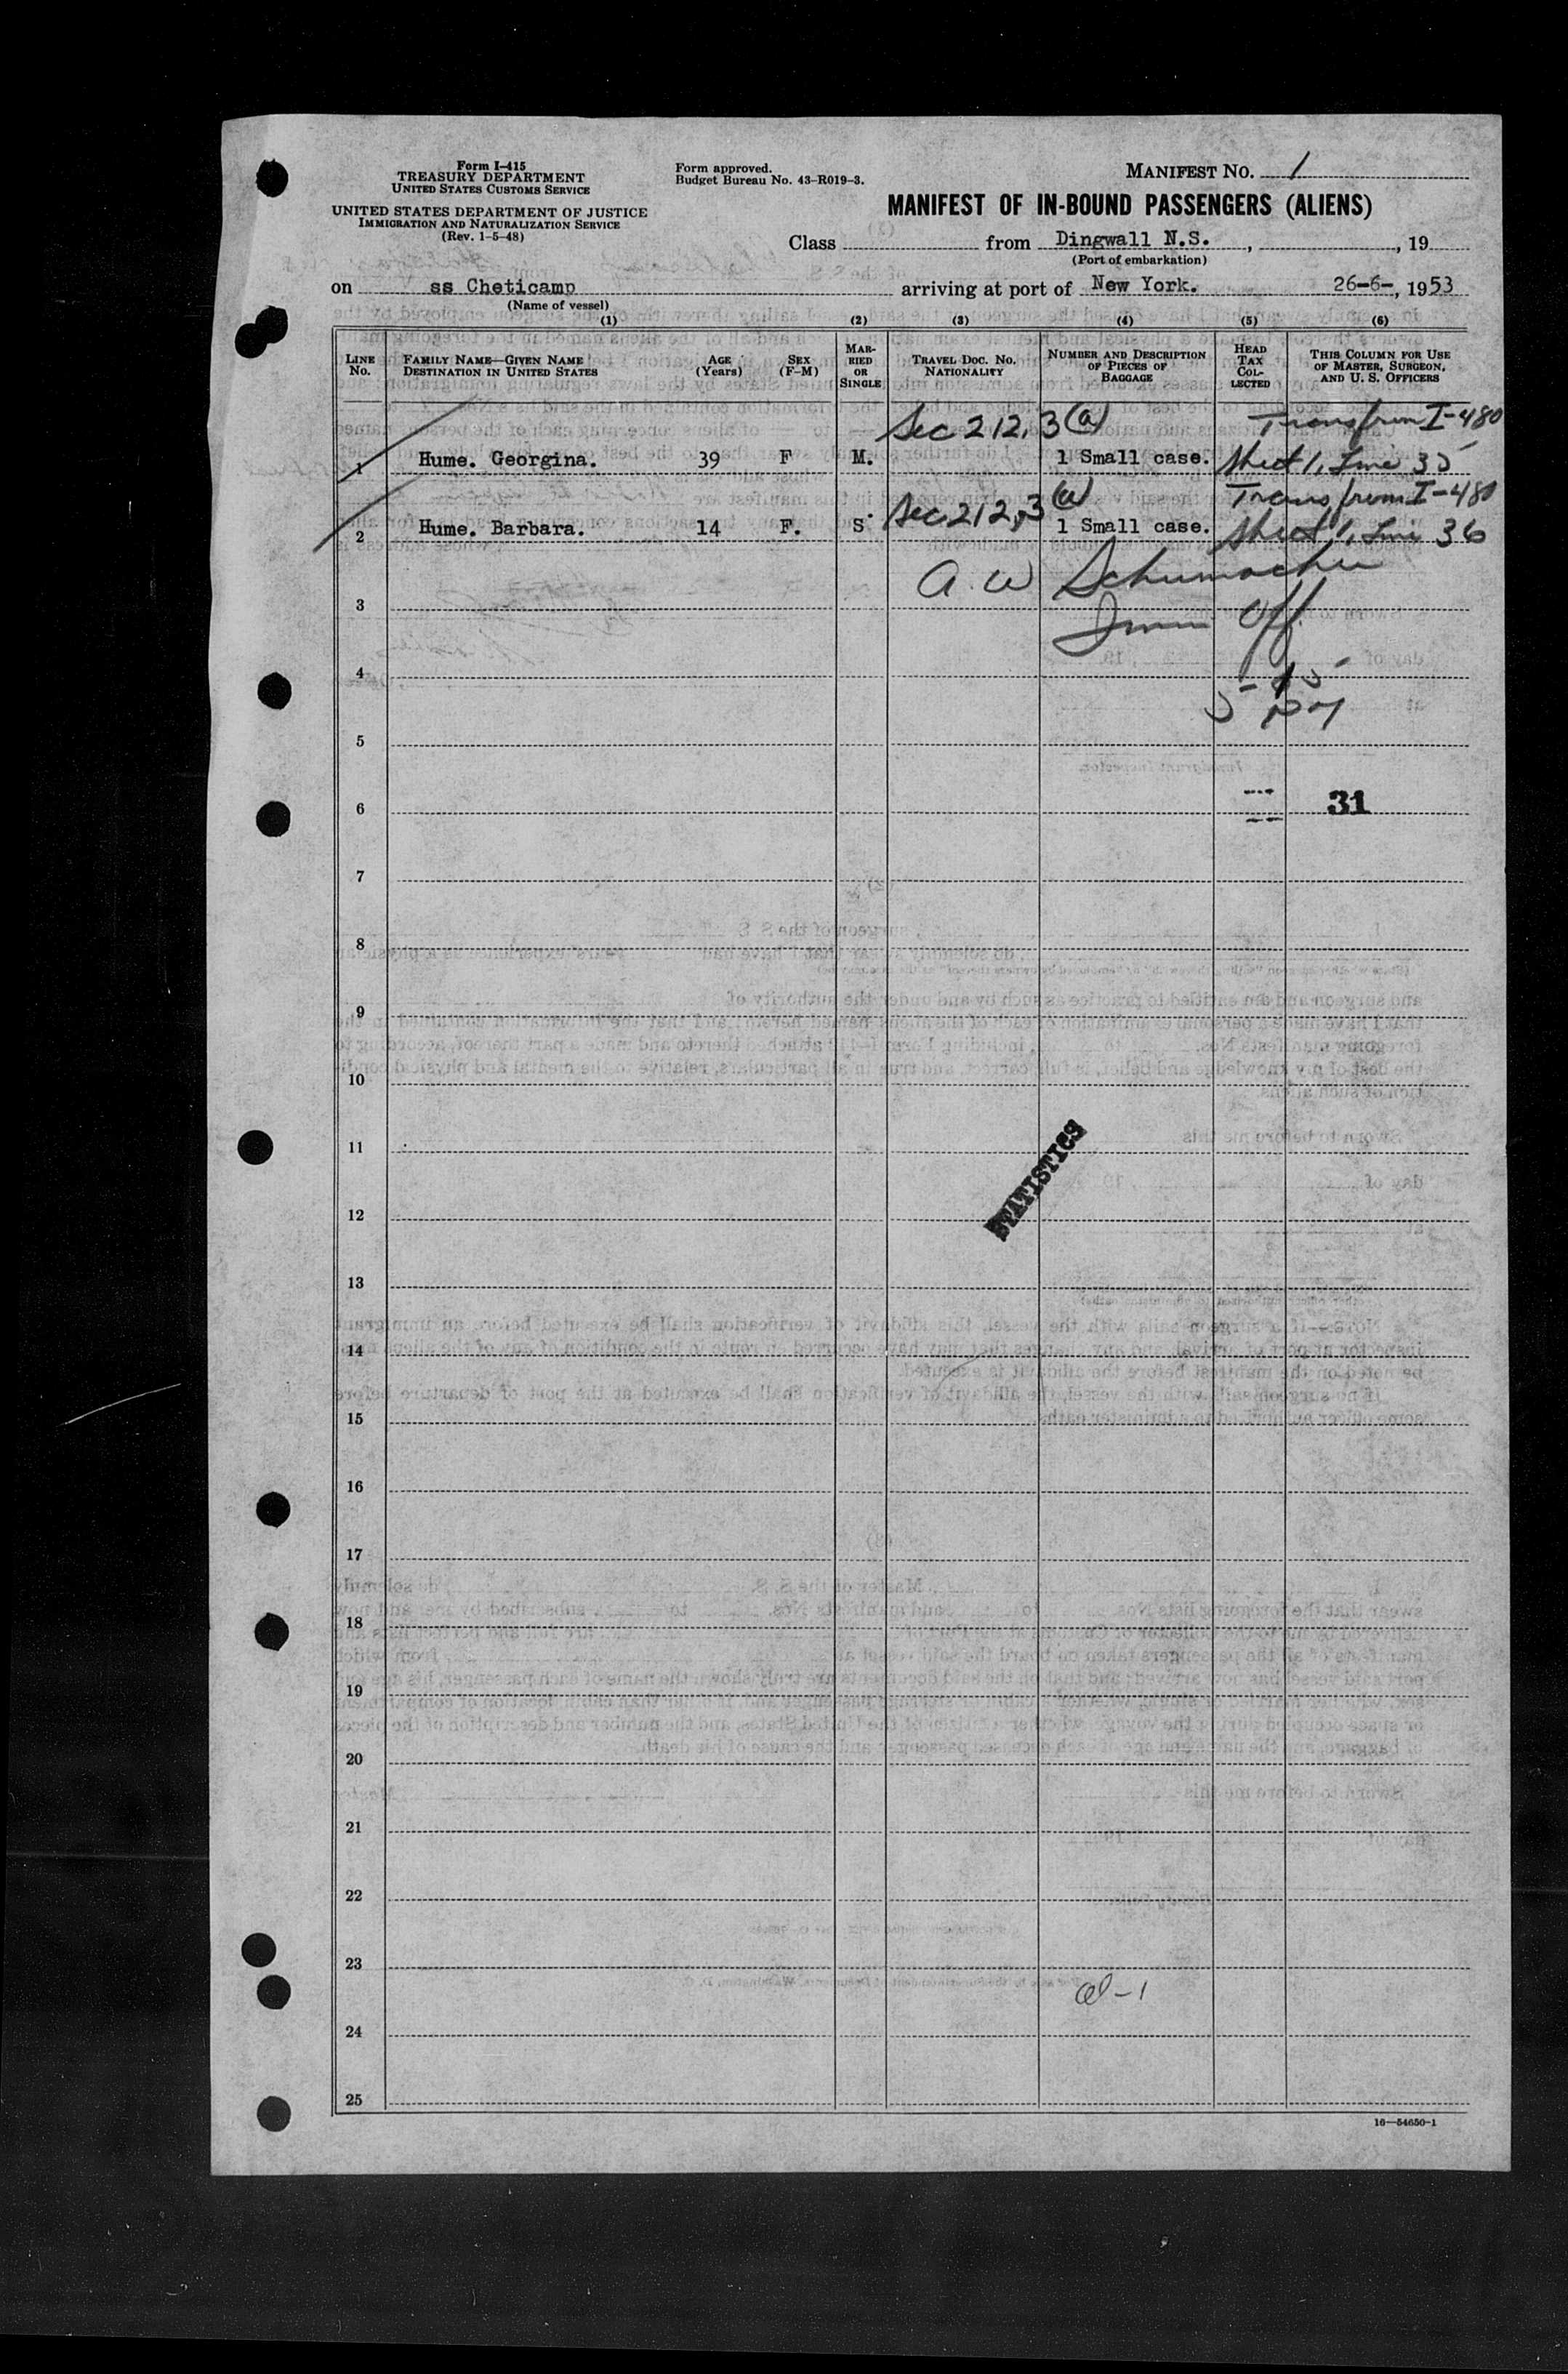 Form I-415
TREASURY DEPARTMENT
UNITED STATES CUSTOMS SERVICE
UNITED STATES DEPARTMENT OF JUSTICE
IMMIGRATION AND NATURALIZATION SERVICE
(Rev. 1-5-48)
Form approved.
Budget Bureau No. 43-R019-3.
MANIFEST NO. 1
MANIFEST OF IN-BOUND PASSENGERS (ALIENS)
Class from Dingwall N.S. , , 19
(Port of embarkation)
on ss Cheticamp arriving at port of New York. 26-6-, 1953
(Name of vessel)
(1) (2) (3) (4) (5) (6)
LINE No. FAMILY NAME—GIVEN NAME DESTINATION IN UNITED STATES AGE (Years) SEX (F-M) MARRIED OR SINGLE TRAVEL DOC. NO. NATIONALITY NUMBER AND DESCRIPTION OF PIECES OF BAGGAGE HEAD TAX COLLECTED THIS COLUMN FOR USE OF MASTER, SURGEON, AND U. S. OFFICERS
Sec 212, 3 (a) Trans from I-480
1 Hume. Georgina. 39 F M. 1 Small case. Sheet 1, Line 35
Sec 212, 3 (a) Trans from I-480
2 Hume. Barbara. 14 F. S 1 Small case. Sheet 1, Line 36
A. W Schumacher
3 Imm Off
4
5
6 31
7
8
9
10
11
STATISTICS
12
13
14
15
16
17
18
19
20
21
22
23
24
25
16—54650-1